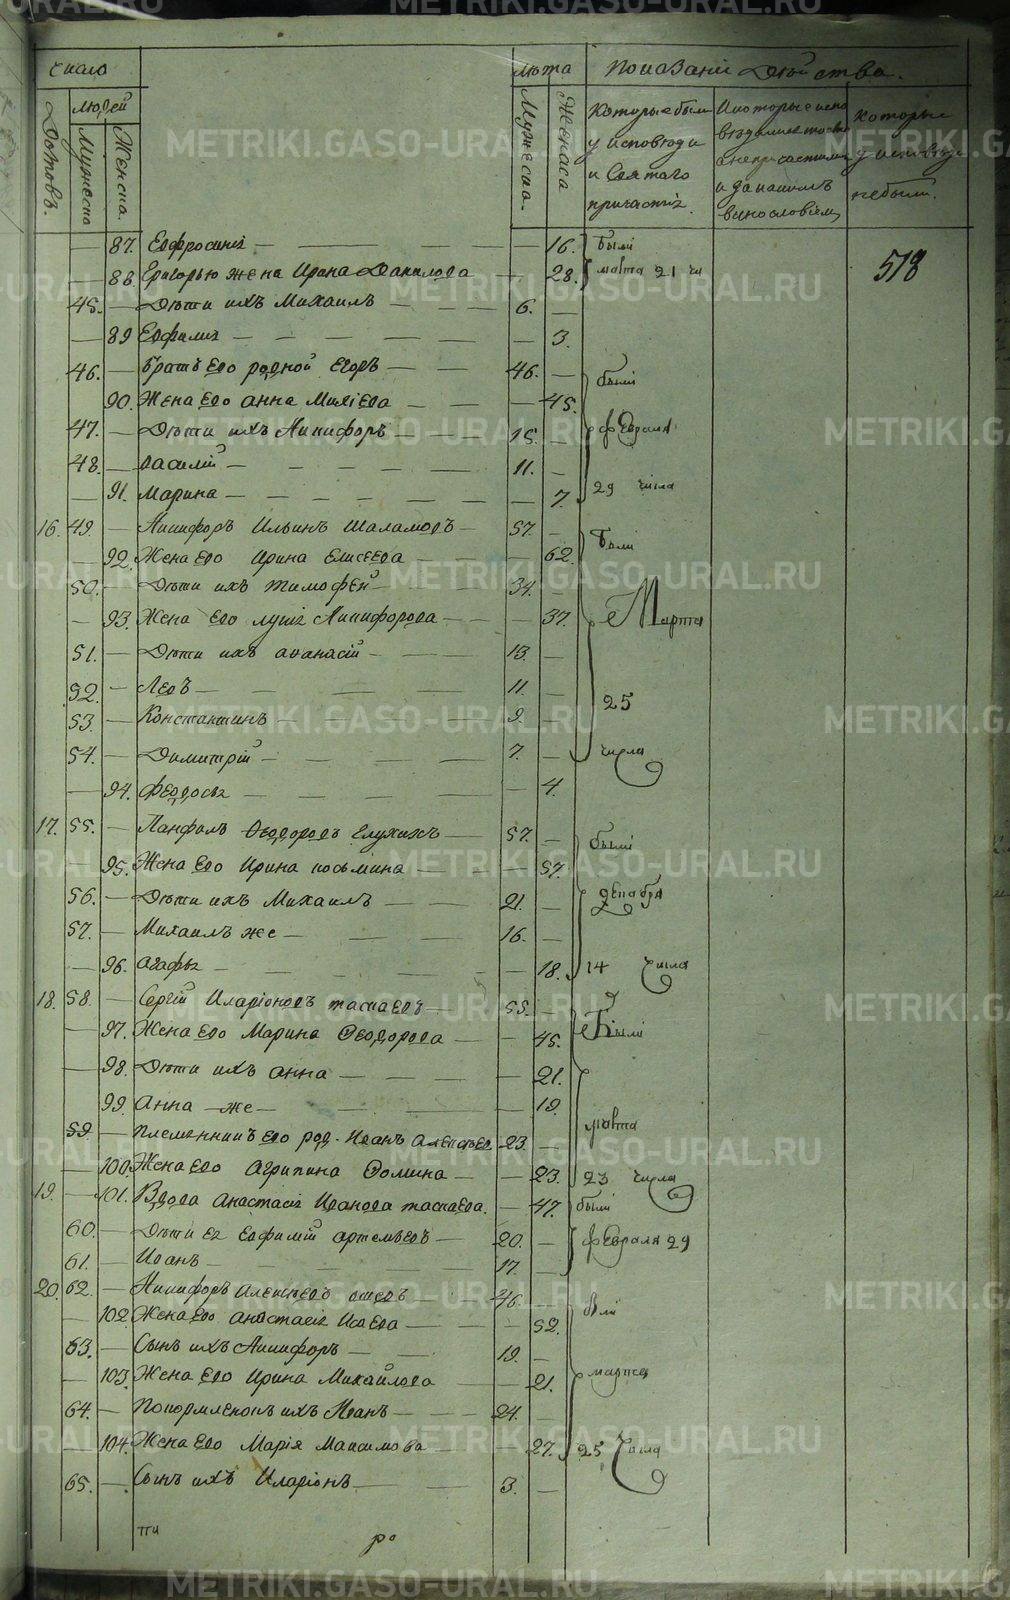 METRIKI.GASO-URAL.RU
число лѣта Показаніи Дѣйства.
Домовъ. людей Мужеска Женска. Мужеска. Женска
Которые были у исповѣди и Святаго причастія.
которые у исповѣди небыли.
518
— 87. Евфросинія — — 16. были
— 88. Григорью жена Ирина Данилова — 28. марта 21 чи
45. — Дѣти ихъ Михаилъ — 6. —
— 89 Евфимія — — 3.
46. — Братъ его родной Егоръ — 46. — были
— 90. Жена его анна Михіева — 45.
47. — Дѣти ихъ Никифоръ — 15. — февраля
48. — василій — 11. —
— 91. Марина — — 7. 29 числа
16. 49. — Никифоръ Ильинъ Шаламовъ — 57. — были
— 92. Жена его Ирина Елисеева — 62.
50. — Дѣти ихъ тимофей — 34. —
— 93. Жена его лукія Никифорова — — 37. Марта
51. — Дѣти ихъ аѳанасій — 13. —
52. — Левъ — 11. — 25
53. — Константинъ — 9. —
54. — Димитрій — 7. — числа
— 94. феодосья — — 4.
17. 55. — Панфилъ Ѳеодоровъ Глухихъ — 57. — были
— 95. Жена его Ирина косьмина — — 57.
56. — Дѣти ихъ Михаилъ — 21. — декабря
57. — Михаилъ же — 16. —
— 96. агафья — — 18. 14 числа
18. 58. — Сергій Иларіоновъ таскаевъ — 55. —
— 97. Жена его Марина Ѳеодорова — — 45. были
— 98. Дѣти ихъ анна — — 21.
— 99. анна же — — 19.
59. — Племянникъ его род. Иванъ алексѣев 23. — марта
— 100. Жена его агрипина Ѳомина — — 23. 23 числа
19. — 101. Вдова анастасія Иванова таскаева. — 47. были
60. — Дѣти ея Евфимій артемьевъ — 20. — февраля 29
61. — Иванъ — 17. —
20. 62. — Никифоръ алексѣевъ — 46. — были
— 102. Жена его анастасія Исаева — — 52.
63. — Сынъ ихъ Никифоръ — 19. —
— 103. Жена его Ирина Михайлова — 21. марта
64. — Покормленокъ ихъ Иванъ — 24. —
— 104. Жена его Марія Максимова — 27. 25 числа
65. — Сынъ ихъ Иларіонъ — 3. —